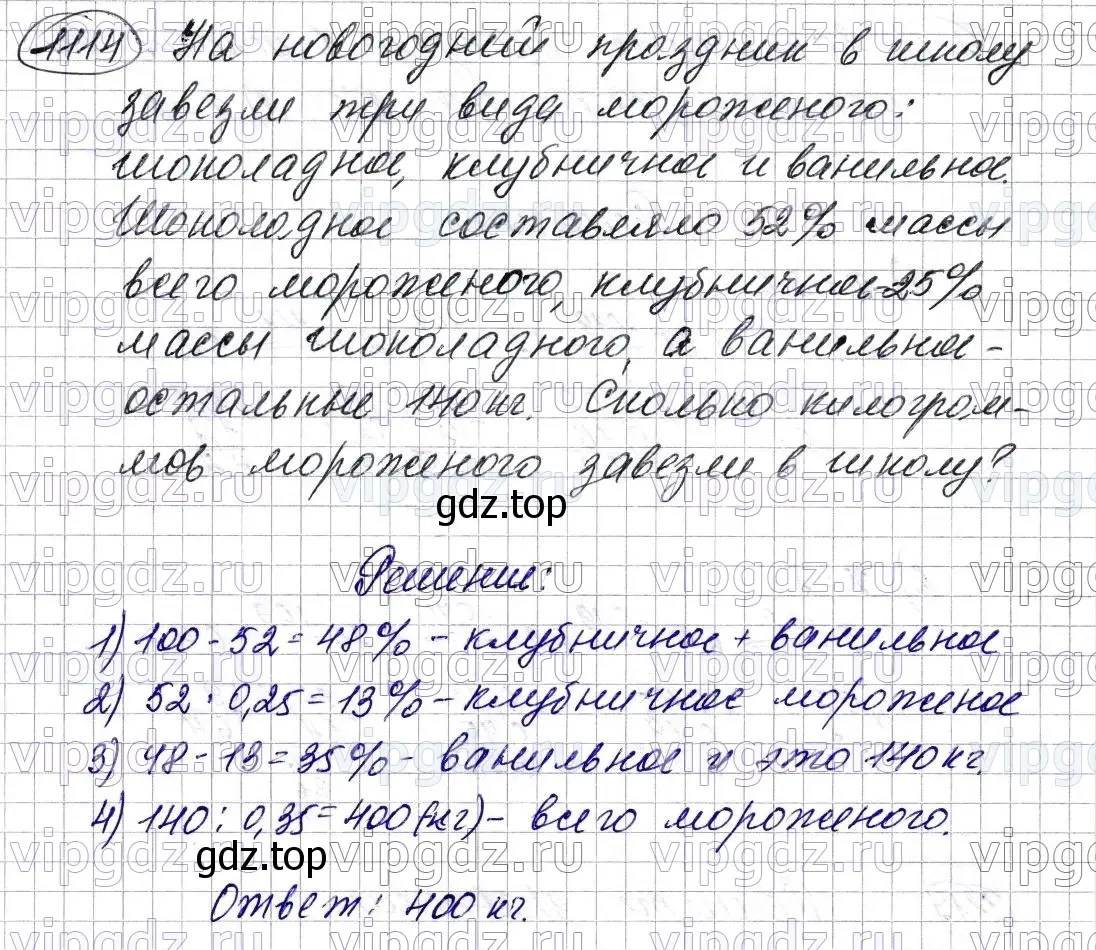 1114 На новогодний праздник в школу
завезли три вида мороженого:
шоколадное, клубничное и ванильное.
Шоколадное составляло 52% массы
всего мороженого, клубничное-25%
массы шоколадного, а ванильное-
остальные 140 кг. Сколько килограм-
мов мороженого завезли в школу?
gdz.top
Решение:
1) 100-52=48% - клубничное + ванильное
2) 52 · 0,25 = 13% - клубничное мороженое
3) 48-13=35% - ванильное и это 140 кг.
4) 140 : 0,35 = 400 (кг) - всего мороженого.
gdz.top
Ответ: 400 кг.